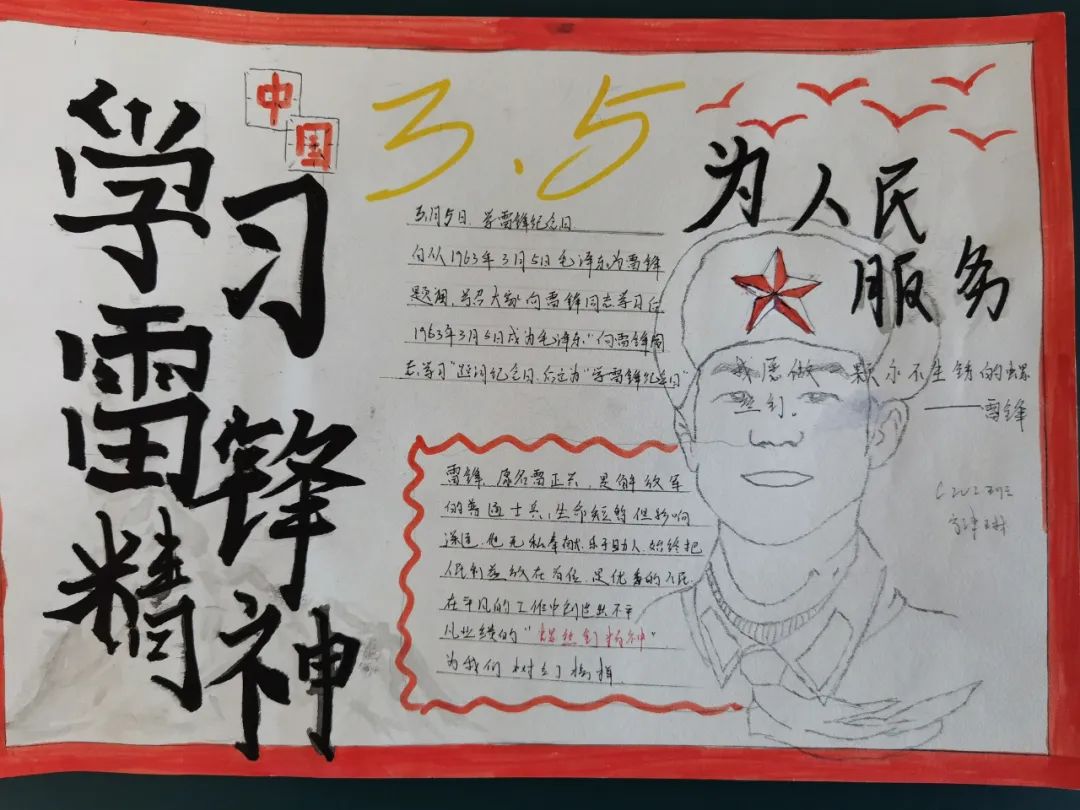 学习
雷锋
精神
中国
3.5
为人民
服务
3月5日 学雷锋纪念日
自从1963年3月5日毛泽东为雷锋
题词,号召大家向雷锋同志学习后
1963年3月5日成为毛泽东"向雷锋同
志学习"题词纪念日,后定为"学雷锋纪念日"
我愿做一颗永不生锈的螺
丝钉.
——雷锋
雷锋,原名雷正兴,是解放军
的普通士兵,生命短暂但影响
深远.他无私奉献.乐于助人.始终把
人民利益放在首位.是优秀的人民.
在平凡的工作中创造出不平
凡业绩的"螺丝钉精神"
为我们树立榜样.
C2112班